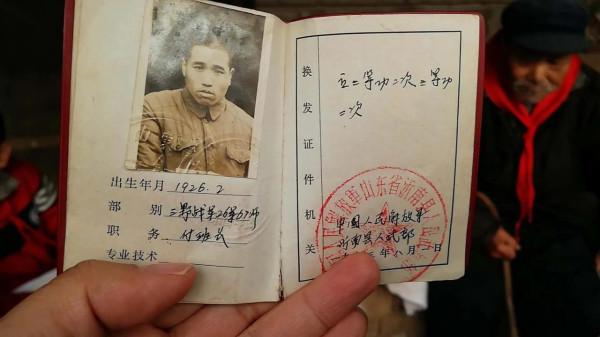 出生年月 1926.2
部 别 三野战军26军67师
职 务 付班长
专业技术
换发证件机关
立二等功二次三等功
二次
中国人民解放军
沂南县人武部
年八月一日
山东省沂南县人民